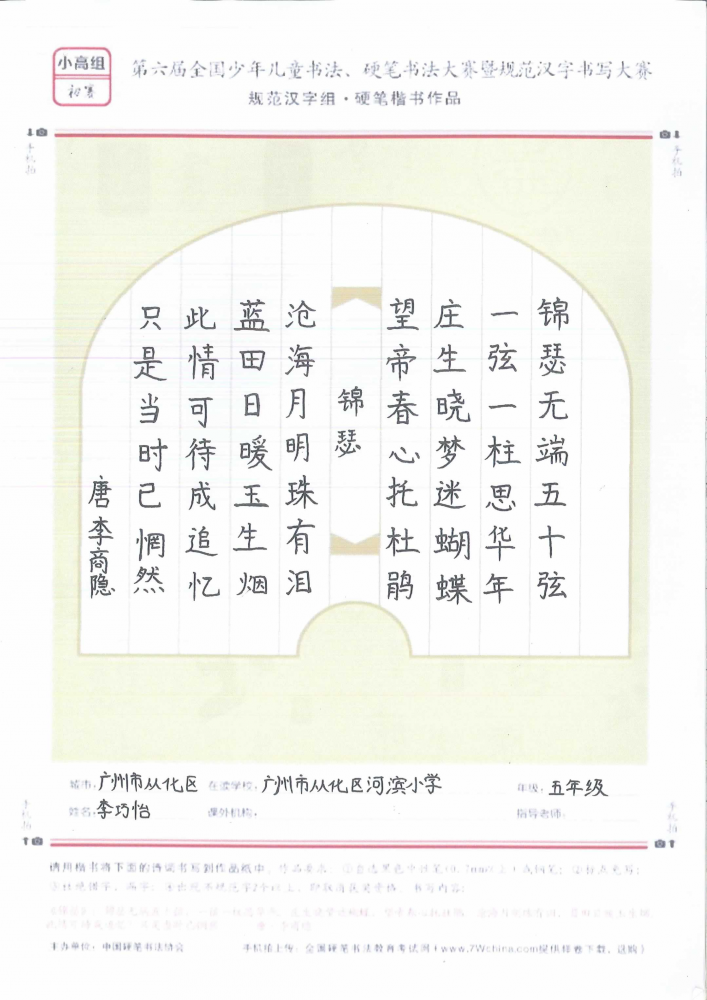 小高组
初赛
第六届全国少年儿童书法、硬笔书法大赛暨规范汉字书写大赛
规范汉字组·硬笔楷书作品
手机拍
手机拍
锦瑟无端五十弦
一弦一柱思华年
庄生晓梦迷蝴蝶
望帝春心托杜鹃
锦瑟
沧海月明珠有泪
蓝田日暖玉生烟
此情可待成追忆
只是当时已惘然
唐李商隐
城市：广州市从化区 在读学校：广州市从化区河滨小学 年级：五年级
姓名：李巧怡 课外机构： 指导老师：
手机拍
手机拍
请用楷书将下面的诗词书写到作品纸中，作品要求：
书写内容：
主办单位：中国硬笔书法协会 手机拍上传：全国硬笔书法教育考试网（www.7Wchina.com提供样卷下载、选购）